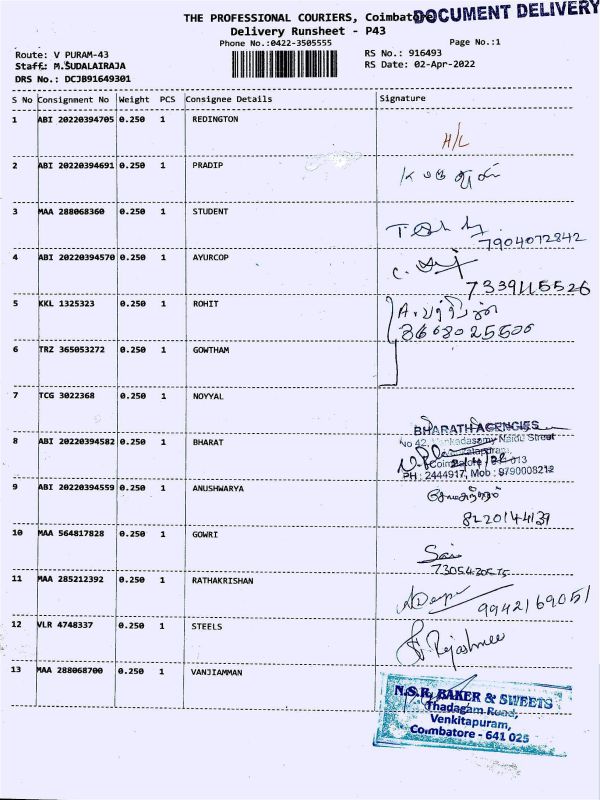 THE PROFESSIONAL COURIERS, Coimbatore
DOCUMENT DELIVERY
Delivery Runsheet - P43
Phone No.:0422-3505555
Page No.:1
Route: V PURAM-43
RS No.: 916493
Staff: M.SUDALAIRAJA
RS Date: 02-Apr-2022
DRS No.: DCJB91649301
S No Consignment No Weight PCS Consignee Details Signature
1 ABI 20220394705 0.250 1 REDINGTON
H/L
2 ABI 20220394691 0.250 1 PRADIP
3 MAA 288068360 0.250 1 STUDENT
7904072842
4 ABI 20220394570 0.250 1 AYURCOP
7339115526
5 KKL 1325323 0.250 1 ROHIT
8668025506
6 TRZ 365053272 0.250 1 GOWTHAM
7 TCG 3022368 0.250 1 NOYYAL
BHARATH AGENCIES
8 ABI 20220394582 0.250 1 BHARAT
No 42, Venkadasamy Naidu Street
PH : 2444917, Mob : 9790008212
9 ABI 20220394559 0.250 1 ANUSHWARYA
8220144139
10 MAA 564817828 0.250 1 GOWRI
Sai
11 MAA 285212392 0.250 1 RATHAKRISHAN
9942169051
12 VLR 4748337 0.250 1 STEELS
Rajashree
13 MAA 288068700 0.250 1 VANJIAMMAN
N.S.R. BAKER & SWEETS
Thadagam Road,
Venkitapuram,
Coimbatore - 641 025